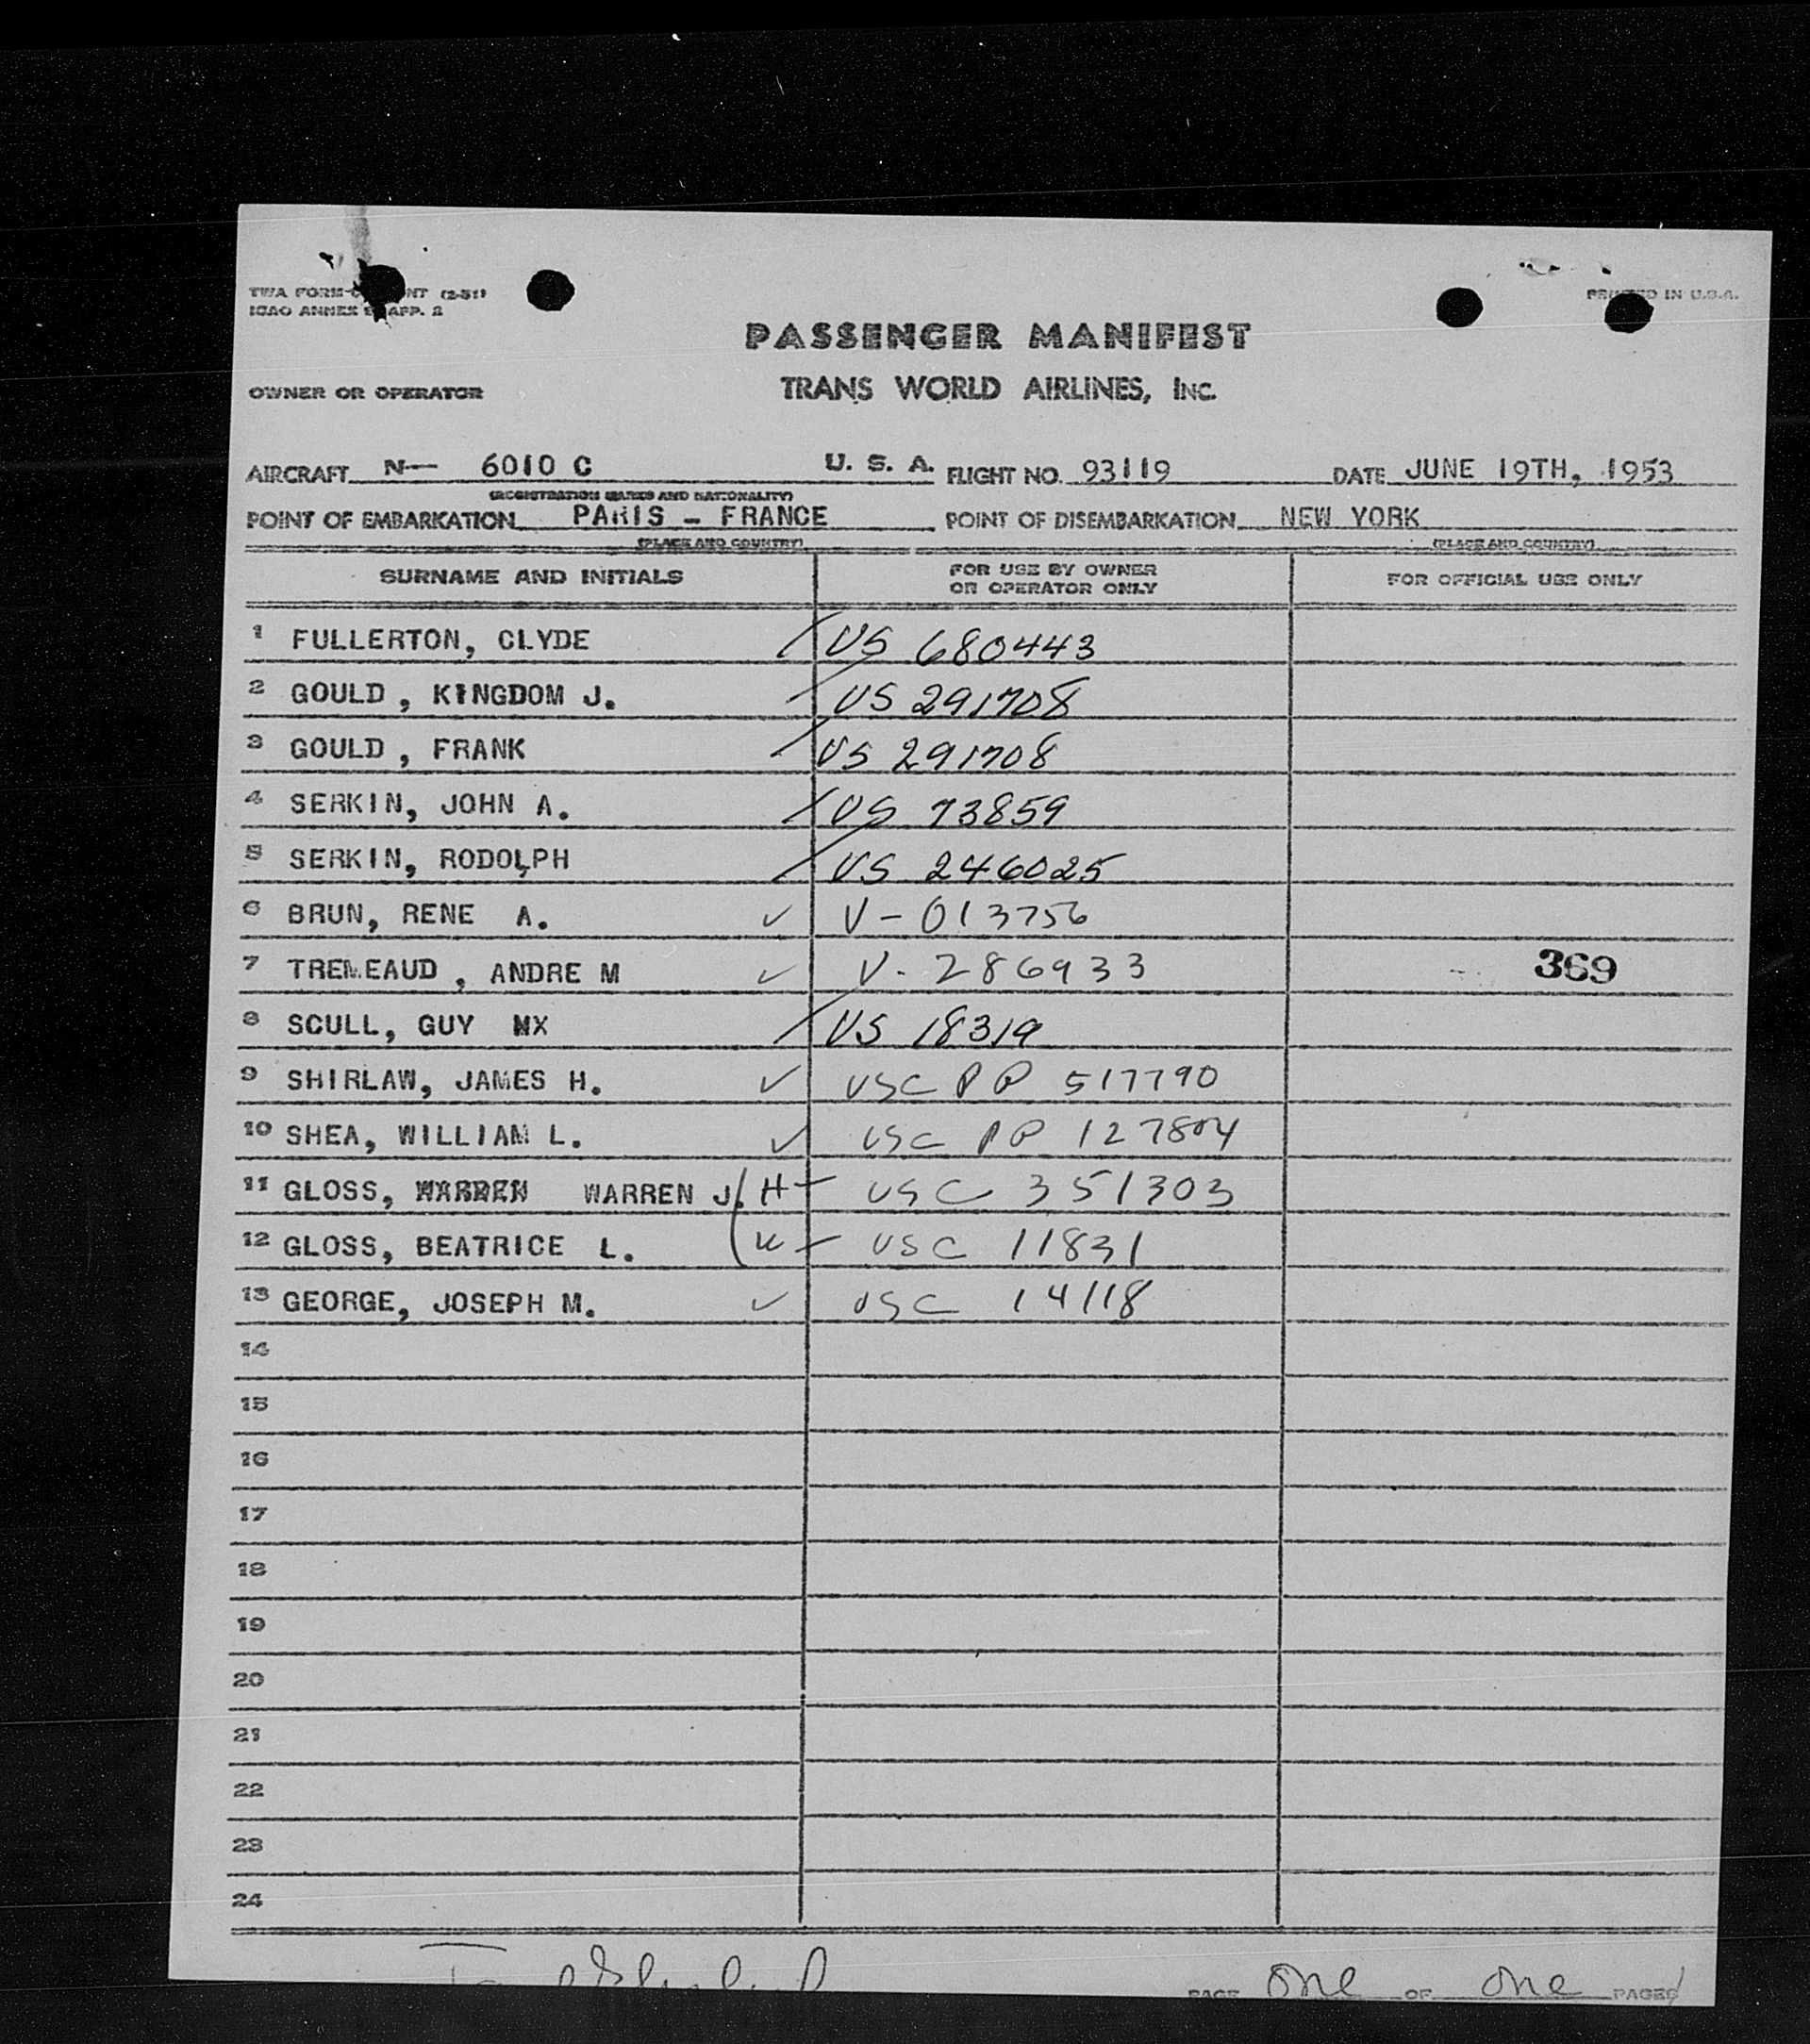 TWA FORM (2-51)
ICAO ANNEX APP. 2
PRINTED IN U.S.A.
PASSENGER MANIFEST
OWNER OR OPERATOR TRANS WORLD AIRLINES, INC.
AIRCRAFT N— 6010 C U. S. A. FLIGHT NO. 93119 DATE JUNE 19TH, 1953
(REGISTRATION MARKS AND NATIONALITY)
POINT OF EMBARKATION PARIS – FRANCE POINT OF DISEMBARKATION NEW YORK
(PLACE AND COUNTRY) (PLACE AND COUNTRY)
SURNAME AND INITIALS FOR USE BY OWNER OR OPERATOR ONLY FOR OFFICIAL USE ONLY
1 FULLERTON, CLYDE US 680443
2 GOULD , KINGDOM J. US 291708
3 GOULD , FRANK US 291708
4 SERKIN, JOHN A. US 73859
5 SERKIN, RODOLPH US 246025
6 BRUN, RENE A. ✓ V-013756
7 TREMEAUD , ANDRE M ✓ V-286933 369
8 SCULL, GUY MX US 18319
9 SHIRLAW, JAMES H. ✓ USC PP 517790
10 SHEA, WILLIAM L. ✓ USC PP 127804
11 GLOSS, WARREN WARREN J. H USC 351303
12 GLOSS, BEATRICE L. W USC 11831
13 GEORGE, JOSEPH M. ✓ USC 14118
14
15
16
17
18
19
20
21
22
23
24
PAGE one OF one PAGES